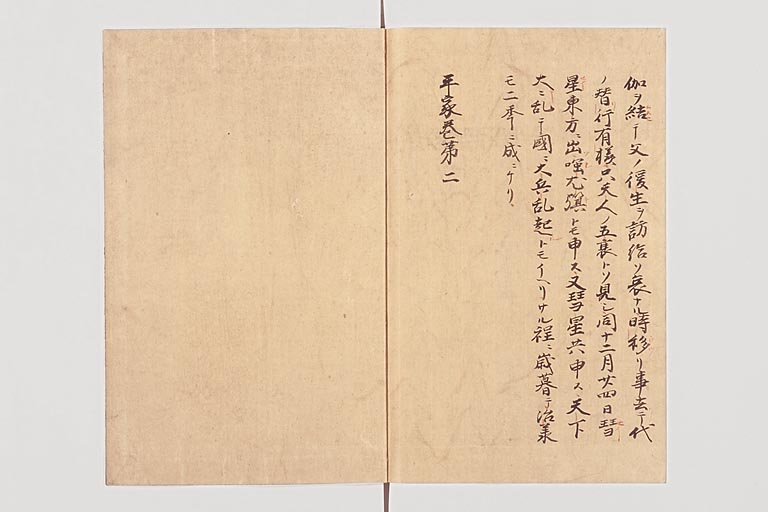 伽ヲ結テ父ノ後生ヲ訪給ソ哀ナル時移リ事去テ代
ノ替行有樣只天人ノ五衰トソ見シ同十二月廿四日彗
星東方ニ出蚩尤旗トモ申ス又彗星共申ス天下
大ニ乱テ國ニ大兵乱起トモイヘリサル程ニ歳暮テ治承
モ二季ニ成ニケリ
平家巻第二